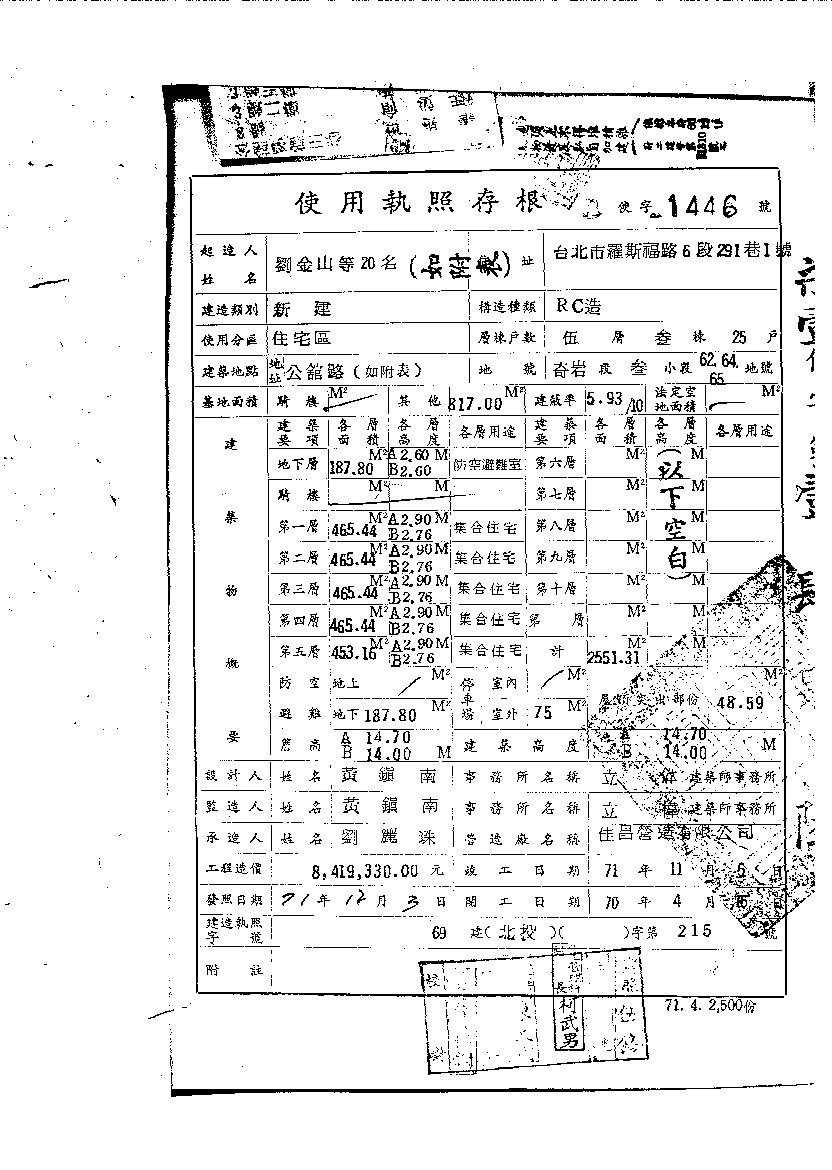 使用執照存根 使字 1446 號
起造人姓名 劉金山等20名(如附表) 址 台北市羅斯福路6段291巷1號
建造類別 新建 構造種類 RC造
使用分區 住宅區 層棟戶數 伍層叁棟25戶
建築地點 地址 公舘路(如附表) 地號 奇岩段叁小段 62, 64, 65 地號
基地面積 騎樓 M² 其他 817.00 M² 建蔽率 5.93/10 法定空地面積 M²
建築物概要 建築要項 各層面積 各層高度 各層用途 建築要項 各層面積 各層高度 各層用途
地下層 187.80 M² A2.60 M B2.60 防空避難室 第六層 M² M
騎樓 M² M 第七層 M² M
(以下空白)
第一層 465.44 M² A2.90 M B2.76 集合住宅 第八層 M² M
第二層 465.44 M² A2.90 M B2.76 集合住宅 第九層 M² M
第三層 465.44 M² A2.90 M B2.76 集合住宅 第十層 M² M
第四層 465.44 M² A2.90 M B2.76 集合住宅 第 層 M²
第五層 453.16 M² A2.90 M B2.76 集合住宅 計 2551.31 M²
防空避難 地上 M² 停車場 室內 M²
地下 187.80 M² 室外 75 M² 突出部份 48.59 M²
簷高 A 14.70 B 14.00 M 建築高度 A 14.70 B 14.00 M
設計人 姓名 黃鎮南 事務所名稱 立 建築師事務所
監造人 姓名 黃鎮南 事務所名稱 立 建築師事務所
承造人 姓名 劉麗洙 營造廠名稱 佳昌營造有限公司
工程造價 8,419,330.00 元 竣工日期 71年11月 日
發照日期 71年12月3日 開工日期 70年4月 日
建造執照字號 69 建(北投)( )字第 215 號
附註
柯武男
71. 4. 2,500份